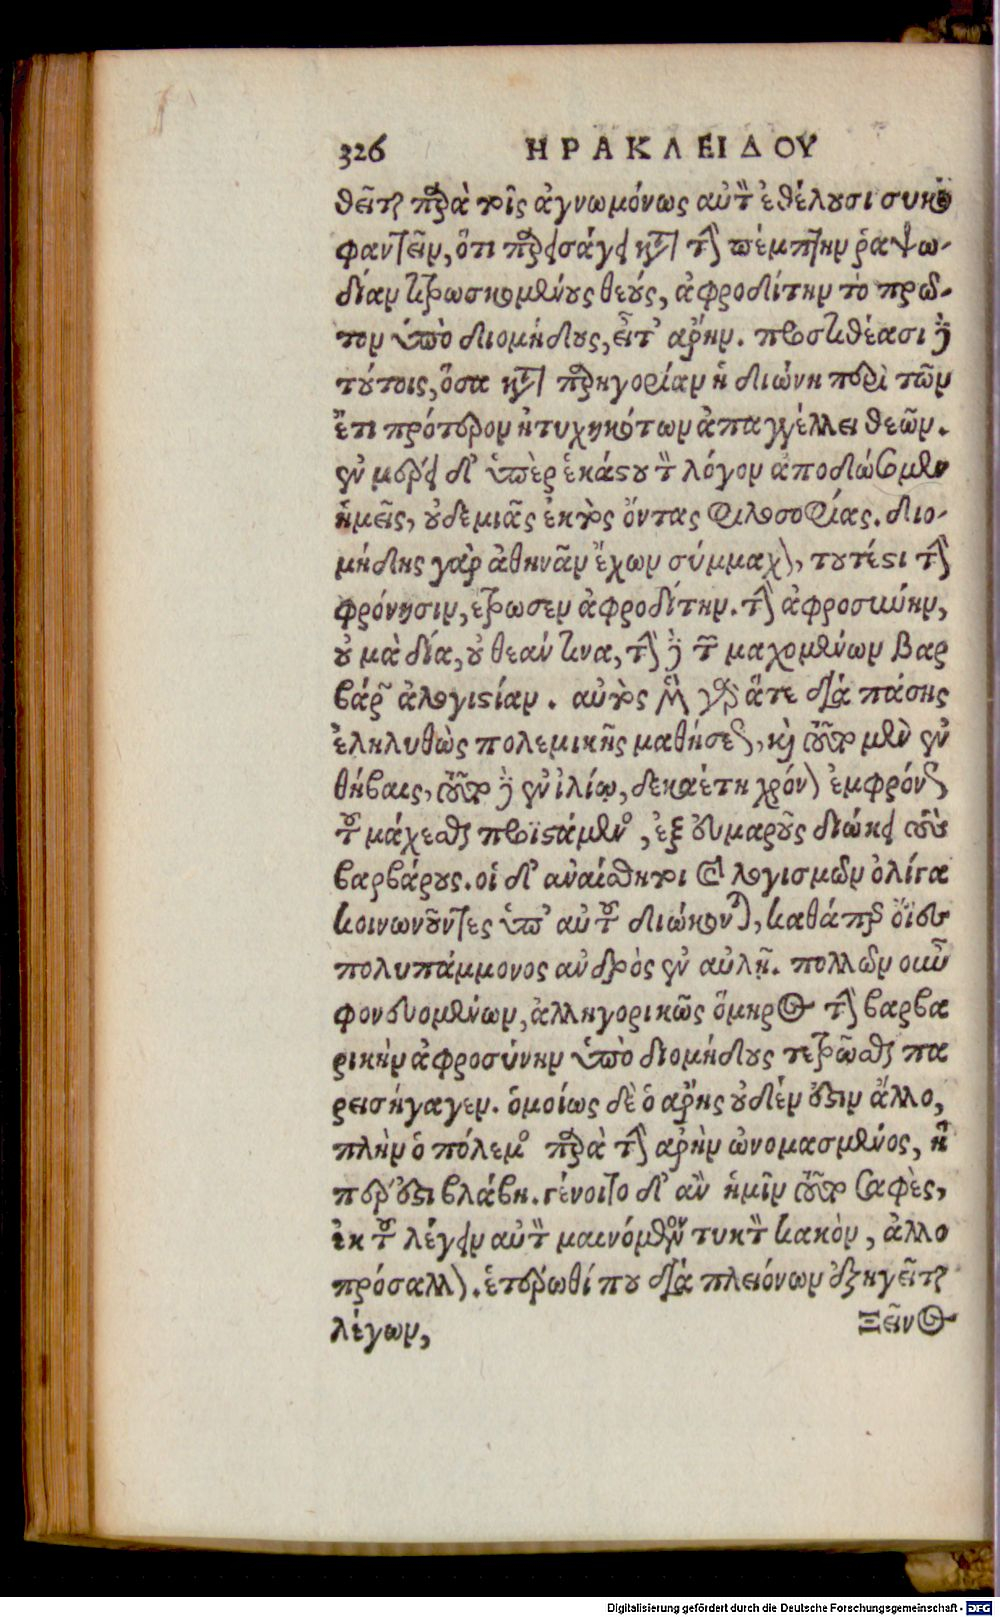 326 ΗΡΑΚΛΕΙΔΟΥ
θεῖται παρὰ τοῖς ἀγνωμόνως αὐτὸν ἐθέλουσι συκο
φαντεῖν, ὅτι παρεισάγει κατὰ τὴν πέμπτην ῥαψω-
δίαν τιτρωσκομένους θεούς, ἀφροδίτην τὸ πρῶ-
τον ὑπὸ διομήδους, εἶτ' ἄρην. προστιθέασι δὲ
τούτοις, ὅσα κατὰ παρηγορίαν ἡ διώνη περὶ τῶν
ἔτι πρότερον ἠτυχηκότων ἀπαγγέλλει θεῶν.
ἐν μέρει δ' ὑπὲρ ἑκάστου τὸν λόγον ἀποδώσομεν
ἡμεῖς, οὐδεμιᾶς ἐκτὸς ὄντας φιλοσοφίας. διο-
μήδης γὰρ ἀθηνᾶν ἔχων σύμμαχον, τουτέστι τὴν
φρόνησιν, ἔτρωσεν ἀφροδίτην. τὴν ἀφροσύνην,
οὐ μὰ δία, οὐ θεάν τινα, τὴν δὲ τῶν μαχομένων βαρ
βάρων ἀλογιστίαν. αὐτὸς μὲν γὰρ ἅτε διὰ πάσης
ἐληλυθὼς πολεμικῆς μαθήσεως, καὶ τοῦτο μὲν ἐν
θήβαις, τοῦτο δὲ ἐν ἰλίῳ, δεκαέτη χρόνον ἐμφρόνως
τοῦ μάχεσθαι προϊστάμενος, ἐξ εὐμαροῦς διώκει τοὺς
βαρβάρους. οἱ δ' ἀναίσθητοι καὶ λογισμῶν ὀλίγα
κοινωνοῦντες ὑπ' αὐτοῦ διώκονται, καθάπερ ὄϊες
πολυπάμμονος ἀνδρὸς ἐν αὐλῇ. πολλῶν οὖν
φονευομένων, ἀλληγορικῶς ὅμηρος τὴν βαρβα
ρικὴν ἀφροσύνην ὑπὸ διομήδους τετρῶσθαι πα
ρεισήγαγεν. ὁμοίως δὲ ὁ ἄρης οὐδέν ἐστιν ἄλλο,
πλὴν ὁ πόλεμος παρὰ τὴν ἀρὴν ὠνομασμένος, ἥ
περ ἐστὶ βλάβη. γένοιτο δ' ἂν ἡμῖν τοῦτο σαφὲς,
ἐκ τοῦ λέγειν αὐτὸν μαινόμενον τυκτὸν κακὸν, ἀλλο
πρόσαλλον. ἑτέρωθί που διὰ πλειόνων ἐξηγεῖται
λέγων, Ξεῖνος
Digitalisierung gefördert durch die Deutsche Forschungsgemeinschaft - DFG